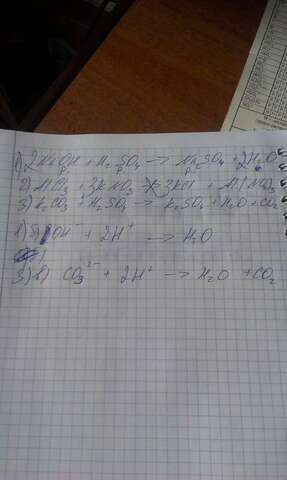 1) 2NaOH + H₂SO₄ → Na₂SO₄ + 2H₂O
р р р
2) AlCl₃ + 3KNO₃ ↛ 3KCl + Al(NO₃
3) K₂CO₃ + H₂SO₄ → K₂SO₄ + H₂O + CO₂
1) OH⁻ + 2H⁺ → H₂O
3) CO₃²⁻ + 2H⁺ → H₂O + CO₂